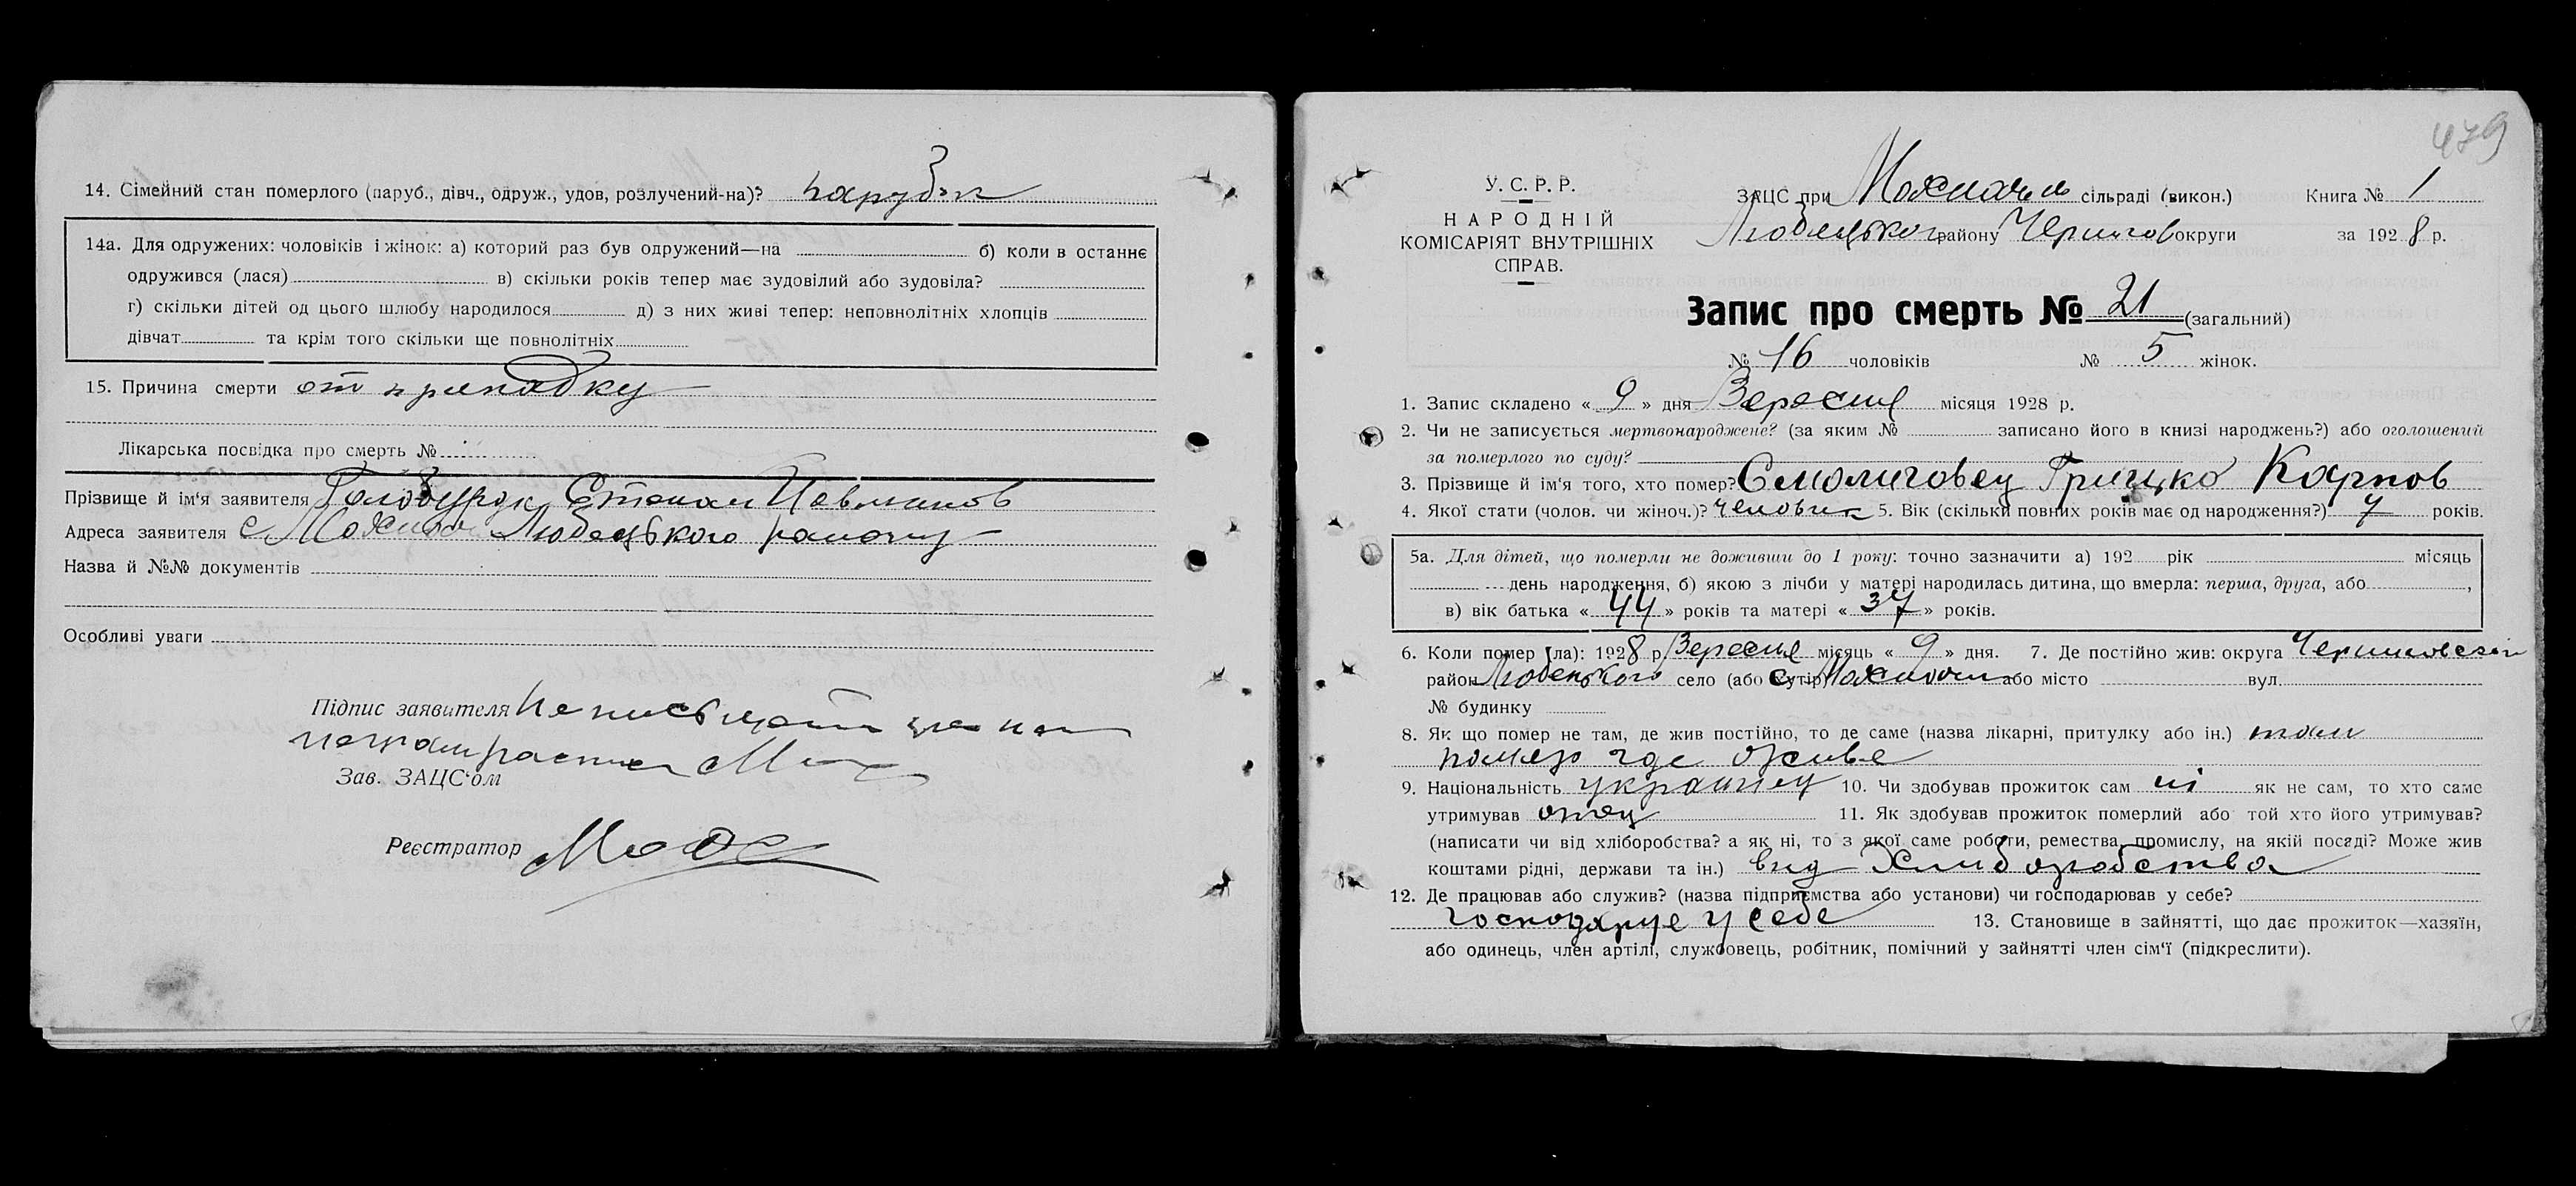 14. Сімейний стан померлого (паруб., дівч., одруж., удов, розлучений-на)? парубок
14а. Для одружених: чоловіків і жінок: а) которий раз був одружений—на б) коли в останнє
одружився (лася) в) скільки років тепер має зудовілий або зудовіла?
г) скільки дітей од цього шлюбу народилося д) з них живі тепер: неповнолітніх хлопців
дівчат та крім того скільки ще повнолітніх
15. Причина смерти от припадку
Лікарська посвідка про смерть №
Прізвище й ім'я заявителя Степан
Адреса заявителя с Любецького району
Назва й №№ документів
Особливі уваги
Підпис заявителя
Зав. ЗАЦС'ом
Реєстратор
479
У. С. Р. Р.
НАРОДНІЙ
КОМІСАРІЯТ ВНУТРІШНІХ
СПРАВ.
ЗАЦС при сільраді (викон.) Книга № 1
Любецького району Чернигов округи за 1928 р.
Запис про смерть № 21 (загальний)
№ 16 чоловіків № 5 жінок.
1. Запис складено « 9 » дня Вересня місяця 1928 р.
2. Чи не записується мертвонароджене? (за яким № записано його в книзі народжень?) або оголошений
за померлого по суду?
3. Прізвище й ім'я того, хто помер? Смолиговец Грицко Карпов
4. Якої стати (чолов. чи жіноч.)? человик 5. Вік (скільки повних років має од народження?) 7 років.
5а. Для дітей, що померли не доживши до 1 року: точно зазначити а) 192 рік місяць
день народження, б) якою з лічби у матері народилась дитина, що вмерла: перша, друга, або ,
в) вік батька « 44 » років та матері « 37 » років.
6. Коли помер (ла): 1928 р. Вересня місяць « 9 » дня. 7. Де постійно жив: округа
район Любецького село (або хутір) або місто вул.
№ будинку
8. Як що помер не там, де жив постійно, то де саме (назва лікарні, притулку або ін.) там
помер где живе
9. Національність украинец 10. Чи здобував прожиток сам ні як не сам, то хто саме
утримував отец 11. Як здобував прожиток померлий або той хто його утримував?
(написати чи від хліборобства? а як ні, то з якої саме роботи, ремества, промислу, на якій посаді? Може жив
коштами рідні, держави та ін.) вид Хлиборобства
12. Де працював або служив? (назва підприємства або установи) чи господарював у себе?
господарує у себе 13. Становище в зайнятті, що дає прожиток—хазяїн,
або одинець, член артілі, службовець, робітник, помічний у зайнятті член сім'ї (підкреслити).